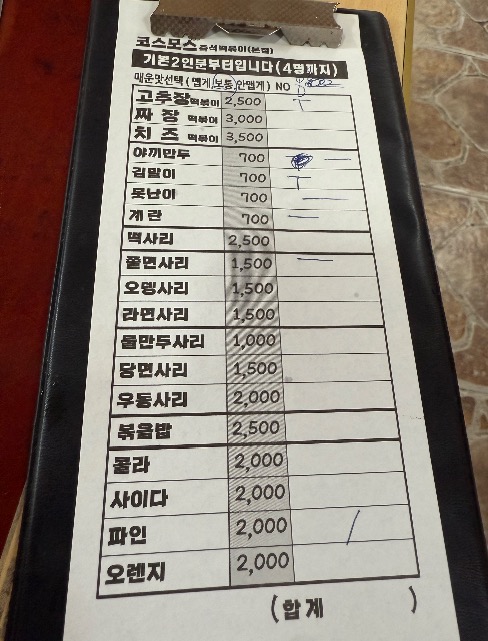 코스모스즉석떡볶이(본점)
기본2인분부터입니다(4명까지)
매운맛선택(맵게,보통,안맵게) NO
고추장떡볶이 2,500 T
짜장 떡볶이 3,000
치즈 떡볶이 3,500
야끼만두 700 —
김말이 700 T
못난이 700 —
계란 700
떡사리 2,500
쫄면사리 1,500 —
오뎅사리 1,500
라면사리 1,500
물만두사리 1,000
당면사리 1,500
우동사리 2,000
볶음밥 2,500
콜라 2,000
사이다 2,000
파인 2,000 /
오렌지 2,000
(합계 )